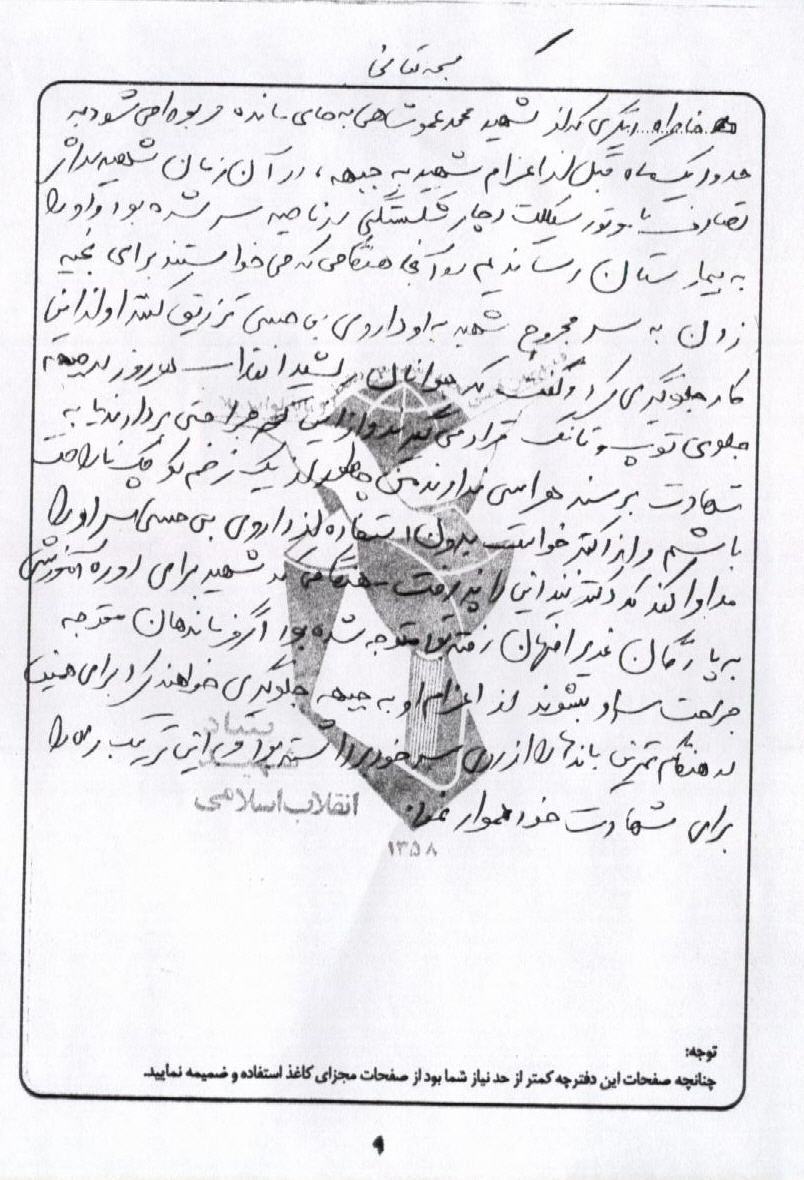 بسمه تعالی
خاطره دیگری که از شهید محمد عموشاهی به جای مانده مربوط می شود به
حدود یکماه قبل از اعزام شهید به جبهه ، در آن زمان شهید بر اثر
تصادف با موتور سیکلت دچار شکستگی در ناحیه سر شده بود و او را
به بیمارستان رساندیم در آنجا هنگامی که می خواستند برای بخیه
زدن به سر مجروح شهید به او داروی بی حسی تزریق کنند او از این
کار جلوگیری کرد و گفت که جوانان رشید انقلاب هر روز در جبهه
جلوی توپ و تانک قرار می گیرند و از این جراحتی بردارند یا به
شهادت برسند هراسی ندارند من چطور از یک زخم کوچک ناراحت
باشم و از دکتر خواست بدون استفاده از داروی بی حسی سر او را
مداوا کند که دکتر نیز این را پذیرفت هنگامی که شهید برای دوره آموزشی
به پادگان غدیر اصفهان رفته بود متوجه شده بود اگر فرماندهان متوجه
جراحت سر او بشوند از اعزام او به جبهه جلوگیری خواهند کرد برای همین
در هنگام تمرین باندها را از روی سر خود برداشته بود و به این ترتیب راه را
برای شهادت خود هموار نمود.
بنیاد
شهید
انقلاب اسلامی
۱۳۵۸
توجه:
چنانچه صفحات این دفترچه کمتر از حد نیاز شما بود از صفحات مجزای کاغذ استفاده و ضمیمه نمایید.
۹